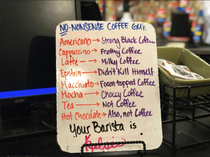 NO-NONSENSE COFFEE GUIDE
Americano → Strong Black Coffee
Cappuccino → Frothy Coffee
Latte → Milky Coffee
Epstein → Didn't Kill Himself
Macchiato → Foam topped Coffee
Mocha → Chocy Coffee
Tea → Not Coffee
Hot Chocolate → Also, not Coffee
Your Barista is